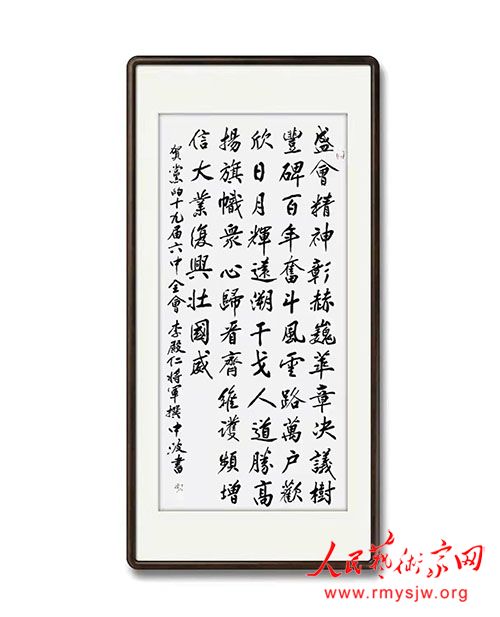 盛會精神彰赫巍華章决議樹
豐碑百年奮斗風雲路萬户歡
欣日月輝遠溯干戈人道勝高
揚旗幟衆心歸看齊維護頻增
信大業復興壯國威
賀黨的十九届六中全會李殿仁将軍撰中波書
人民藝術家网
www.rmysjw.org